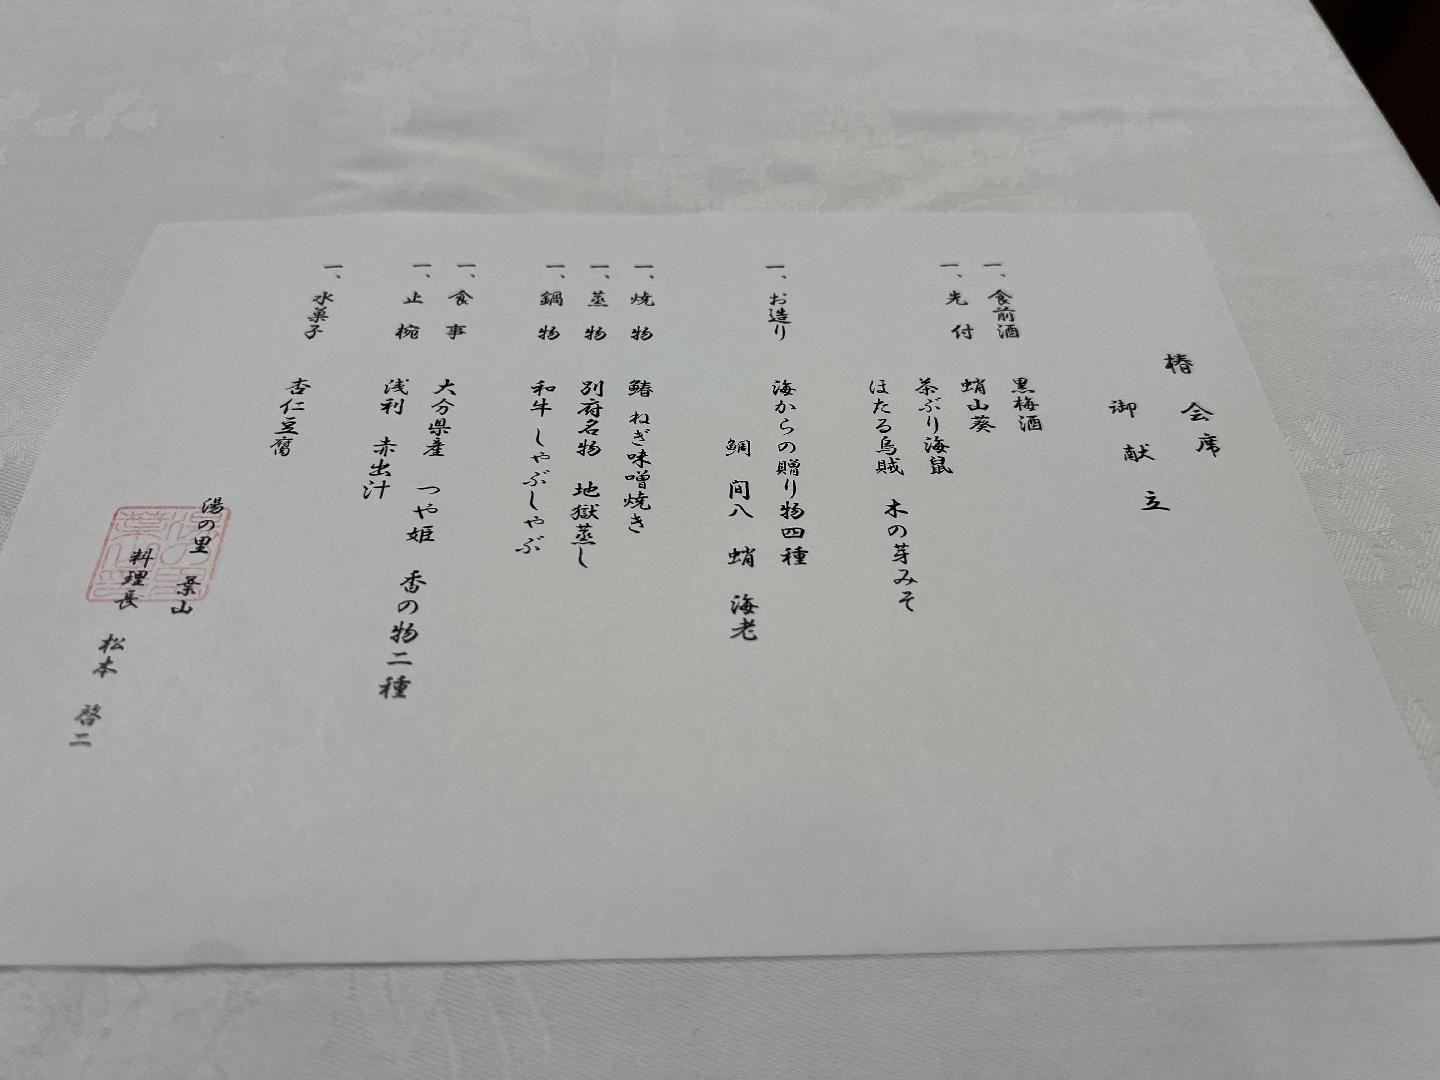 椿会席
御献立
一、食前酒 黒梅酒
一、先付 蛸山葵
茶ぶり海鼠
ほたる烏賊 木の芽みそ
一、お造り 海からの贈り物四種
鯛 間八 蛸 海老
一、焼物 鰆ねぎ味噌焼き
一、蒸物 別府名物 地獄蒸し
一、鍋物 和牛しゃぶしゃぶ
一、食事 大分県産 つや姫 香の物二種
一、止椀 浅利 赤出汁
一、水菓子
杏仁豆腐
湯の里 葉山
料理長 松本 啓二